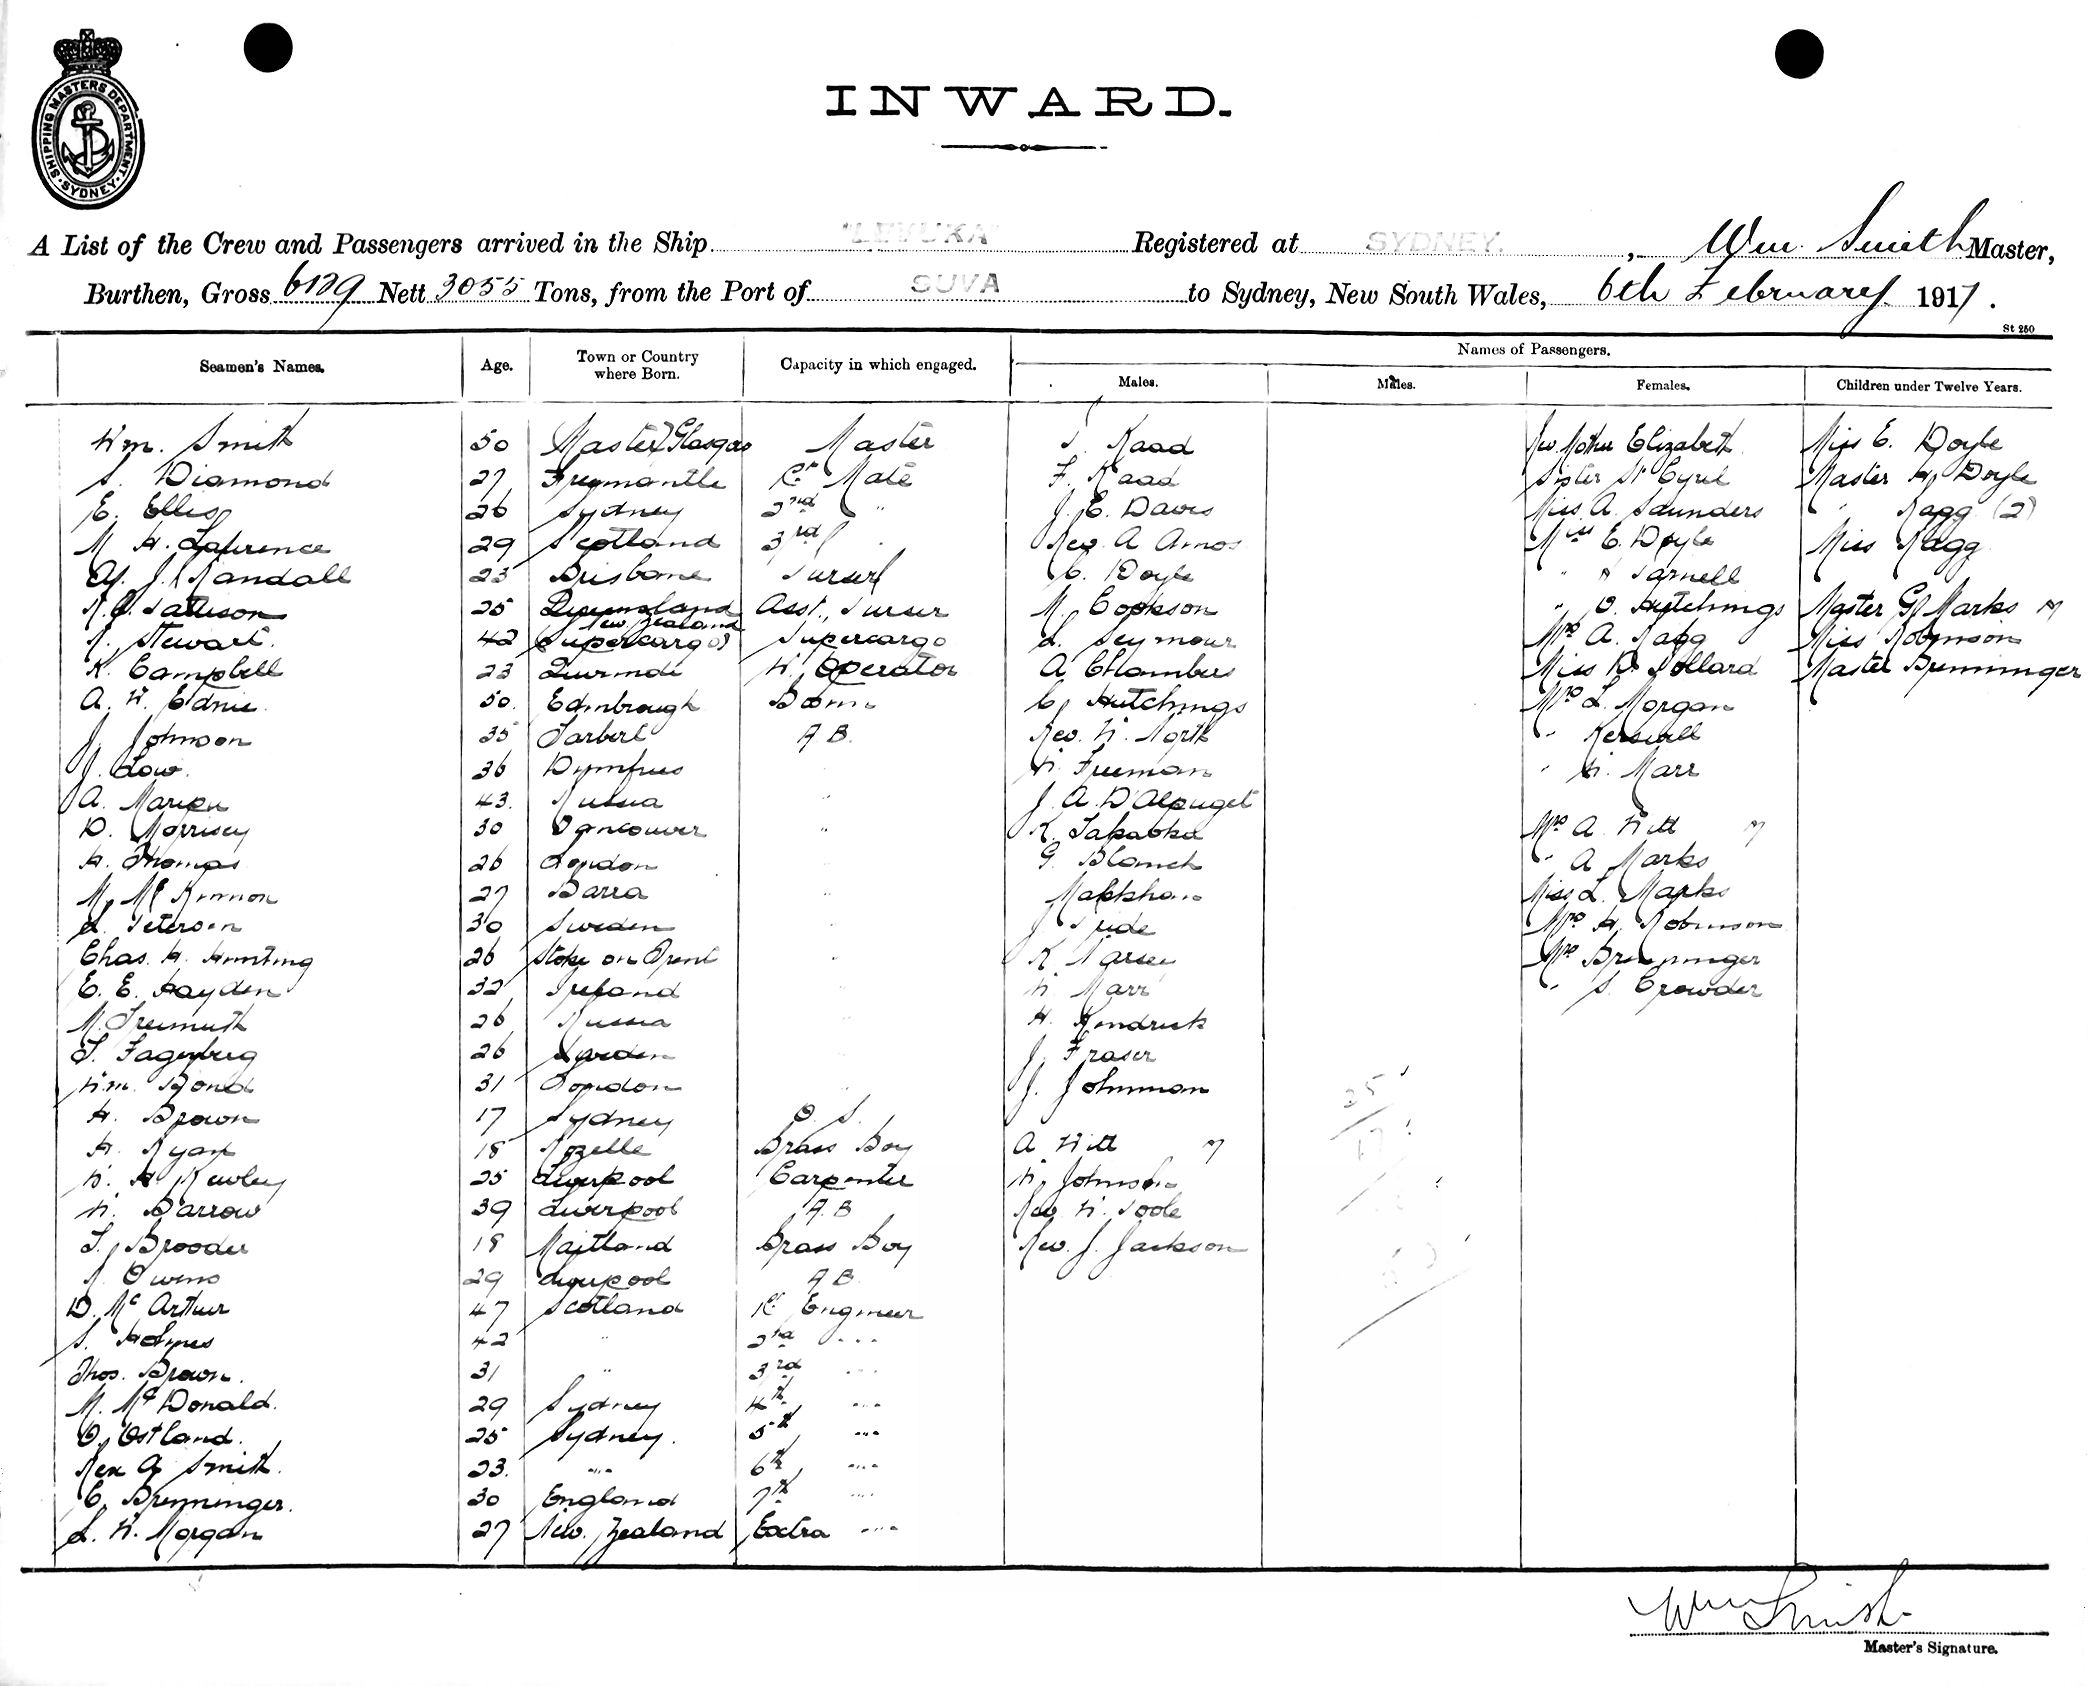 SHIPPING MASTERS DEPARTMENT. SYDNEY
INWARD.
A List of the Crew and Passengers arrived in the Ship "LEVUKA" Registered at SYDNEY. , Wm. Smith Master,
Burthen, Gross 6129 Nett 3055 Tons, from the Port of SUVA to Sydney, New South Wales, 6th February 1917.
St 250
Names of Passengers.
Seamen's Names. Age. Town or Country where Born. Capacity in which engaged. Males. Males. Females. Children under Twelve Years.
Wm. Smith 50 Master Glasgow Master Kaad Rev. Mother Elizabeth Miss E. Doyle
S. Diamond 27 Freymantle 1st Mate F. Kaad Sister St Cyril Master H. Doyle
E. Ellis 26 Sydney 2nd " J. E. Davis Miss A. Saunders " Ragg (2)
M. H. Lawrence 29 Scotland 3rd " Rev. A Amos Miss E. Doyle Miss Ragg
J. Randall 23 Brisbane Purser C. Doyle " Parnell
Pattison 25 Queensland Asst. Purser M. Cookson " O. Hutchings Master G Marks
R. Stewart. 42 New Zealand Supercargo Supercargo L. Seymour Mrs A. Ragg Miss Robinson
K. Campbell 23 Quirindi W. Operator A Chambers Miss R. Pollard Master Brenninger
A. W. Ednie. 50. Edinbrough Bosun C. Hutchings Mrs L. Morgan
J. Johnson 35 Tarbert A B. Rev. W. North " Kerswell
J. Low. 36 Dumfries W. Freeman " W. Marr
A. Marion 43. Russia " J. A. D'Alpuget
D. Morrisey 30 Vancouver " K. Takaoka Mrs A. Witt
H. Thomas 26 London G. Blanch " A Marks
M. McKinnon 27 Barra " Makkhan Miss L. Marks
L. Peterson 30 Sweden J. Pride Mrs H. Robinson
Chas. H. Hunting 26 Stoke on Trent K. Narsey Mrs Brenninger
E. E. Hayden 32 Ireland W. Marr " S. Crowder
M. Freimuth 26 Russia H. Kendrick
T. Fagerberg 26 Sweden J. Fraser
Wm. Bond 31 London J. Johnman
H. Brown 17 Sydney O. S.
H. Ryan 18 Rozelle Brass Boy A. Witt
W. H. Kewley 25 Liverpool Carpenter W. Johnson
W. Barrow 39 Liverpool A.B Rev W. Poole
T. Brooder 18 Maitland Brass Boy Rev. J. Jackson
Owens 29 Liverpool A B.
D. McArthur 47 Scotland 1st Engineer
S. Holmes 42 " 2nd "
Thos. Brown. 31 " 3rd "
M. McDonald. 29 Sydney 4th "
O. Ostland. 25 Sydney. 5th "
Rex A Smith. 23. " 6th "
C. Brenninger. 30 England 7th "
L. W. Morgan 27 New. Zealand Extra "
Wm Smith
Master's Signature.